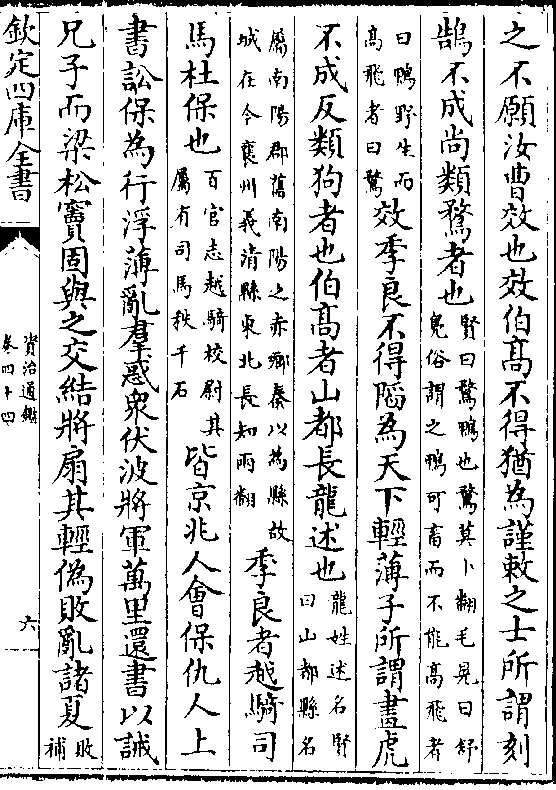 之不願汝曹效也效伯髙不得猶為謹敕之士所謂刻
鵠不成尚類鶩者也賢曰鶩鴨也鶩莫卜翻毛晃曰舒
鳬俗謂之鴨可畜而不能高飛者
曰鴨野生而
高飛者曰鶩效季良不得䧟為天下輕薄子所謂畫虎
不成反類狗者也伯髙者山都長龍述也龍姓述名賢
曰山都縣名
屬南陽郡舊南陽之赤鄉秦以為縣故
城在今襄州義清縣東北長知兩翻季良者越騎司
馬杜保也百官志越騎校尉其
屬有司馬秩千石皆京兆人會保仇人上
書訟保為行浮薄亂羣惑衆伏波將軍萬里還書以誡
兄子而梁松竇固與之交結將扇其輕偽敗亂諸夏敗
補
欽定四庫全書
資治通鑑
卷四十四
六